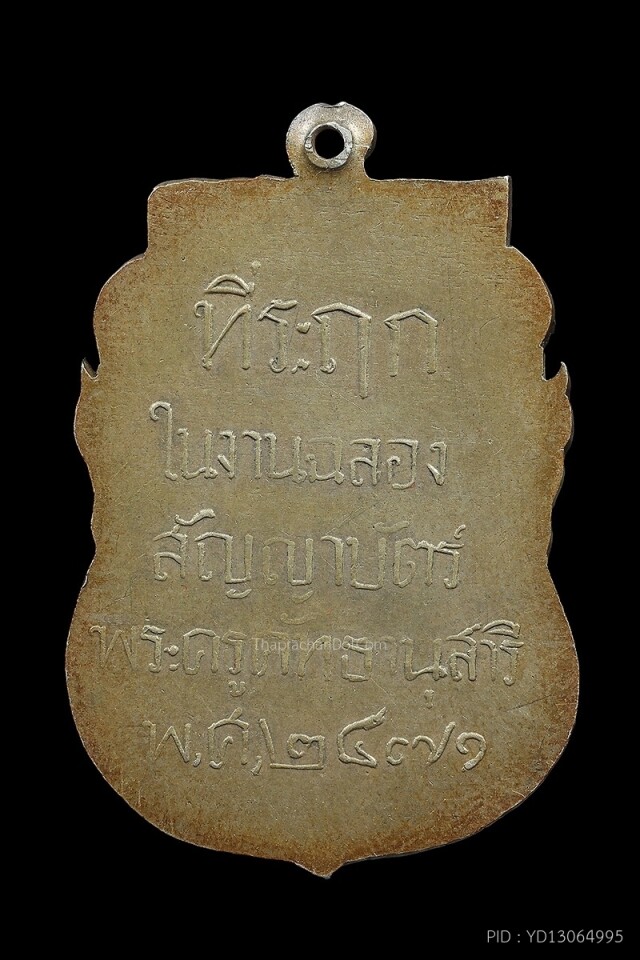 ที่ระฤก
ในงานฉลอง
สัญญาบัตร์
พระครูศัทธานุสารี
ThaprachanDotCom
พ,ศ,๒๔๗๑
PID : YD13064995